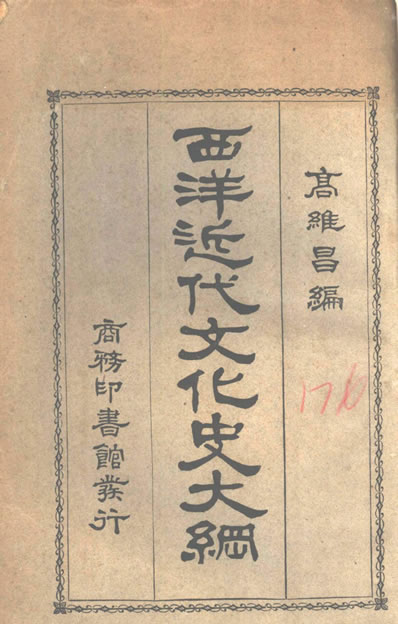 高維昌編
西洋近代文化史大綱
商務印書館發行